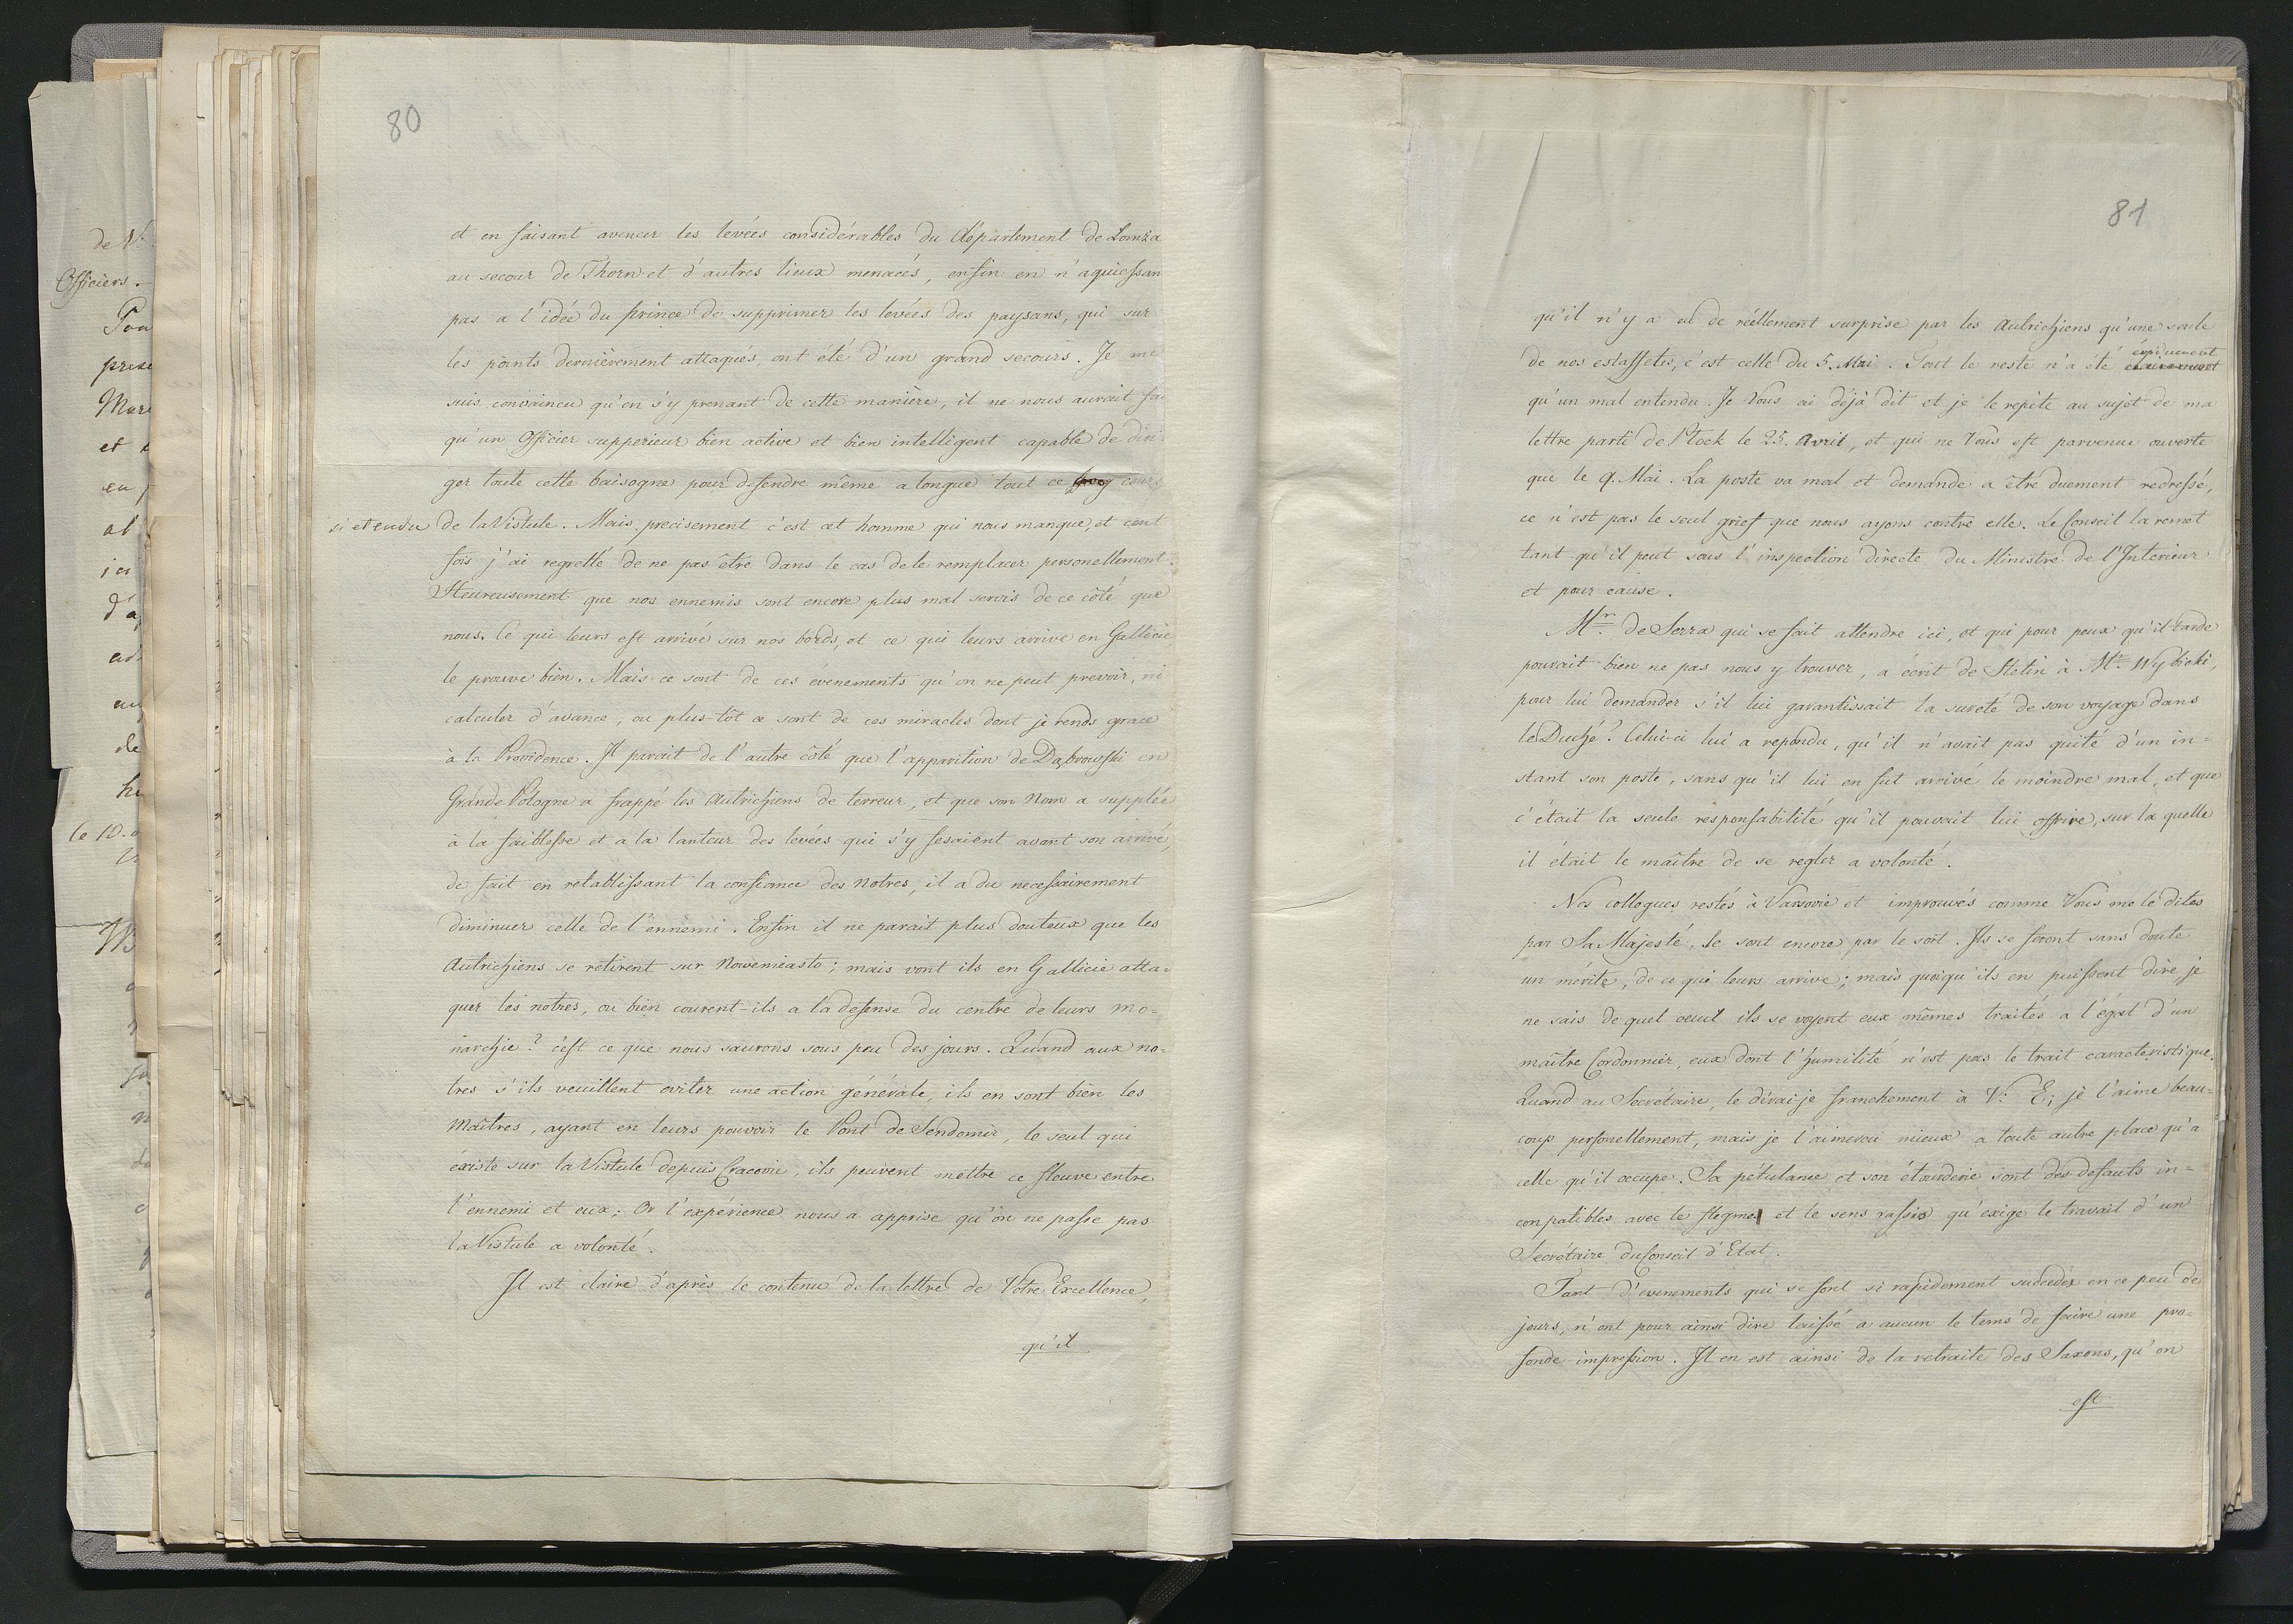 80
et en faisant avencer les levées considérables du départlement de Lomża
au secour de Thorn et d'autres lieux menacés, enfin en n'aquiessan
pas a l'idée du prince de supprimer les levées des paysans, qui sur
les points dernièrement attaqués, ont été d'un grand secours. Je me
suis convaincu qu'en s'y prenant de cette manière, il ne nous aurait fa
qu'un Officier supperieur bien active et bien intelligent capable de diri
ger toute cette baisogne pour defendre même a longue tout ce cours
si etendu de la Vistule. Mais precisement c'est cet homme qui nous manque, et cent
fois j'ai regretté de ne pas être dans le cas de le remplacer personellement.
Heureusement que nos ennemis sont encore plus mal servis de ce côté que
nous. Ce qui leurs est arrivé sur nos bords, et ce qui leurs arrive en Gallicie
le prouve bien. Mais ce sont de ces évenements qu'on ne peut prevoir, ni
calculer d'avance, ou plus-tôt ce sont de ces miracles dont je rends grace
à la Providence. Il parait de l'autre côté que l'apparition de Dąbrowski en
Grande Pologne a frappé les Autrichiens de terreur, et que son Nom a supplée
à la faiblesse et a la lanteur des levées qui s'y fesaient avant son arrivé,
de fait en retablissant la confiance des Notres, il a du necessairement
diminuer celle de l'ennemi. Enfin il ne parait plus douteux que les
Autrichiens se retirent sur Nowemiasto; mais vont ils en Gallicie atta-
quer les notres, ou bien courent-ils a la defense du centre de leurs mo=
narchie? c'est ce que nous saurons sous peu des jours. Quand aux no=
tres s'ils veuillent eviter une action générale, ils en sont bien les
Maîtres, ayant en leurs pouvoir le Pont de Sendomir, le seul qui
éxiste sur la Vistule depuis Cracovie, ils peuvent mettre ce fleuve entre
l'ennemi et eux; Or l'expérience nous a apprise qu'on ne passe pas
la Vistule a volonté.
Il est claire d'après le contenu de la lettre de Votre Excellence,
qu'il
81
qu'il n'y a eu de réellement surprise par les Autrichiens qu'une seule
de nos estaffetes, c'est celle du 5. Mai. Tout le reste n'a été
qu'un mal entendu. Je Vous ai déjà dit et je le repète au sujet de ma
lettre parti de Plock le 25. Avril, et qui ne Vous est parvenue ouverte
que le 9. Mai. La poste va mal et demande a être duement redressé,
ce n'est pas le seul grief que nous ayons contre elle. Le Conseil la remet
tant qu'il peut sous l'inspection directe du Ministre de l'Interieur
et pour cause.
Mr. de Serra qui se fait attendre ici, et qui pour peux qu'il tarde
pouvait bien ne pas nous y trouver, a écrit de Stetin à Mr. Wybicki,
pour lui demander s'il lui garantissait la sureté de son voyage dans
le Duché? Celui-ci lui a repondu, qu'il n'avait pas quité d'un in=
stant son poste, sans qu'il lui en fut arrivé le moindre mal, et que
c'était la seule responsabilité qu'il pouvait lui offrire, sur la quelle
il était le maître de se regler a volonté.
Nos collegues restés à Varsovie et improuvés comme Vous me le dites
par Sa Majesté, le sont encore par le sort. Ils se feront sans doute
un mérite, de ce qui leurs arrive; mais quoiqu'ils en puissent dire, je
ne sais de quel oeuil ils se voyent eux mêmes traités a l'égal d'un
maître Cordonnier, eux dont l'humilité n'est pas le trait caracteristique.
Quand au Secrétaire, le dirai-je franchement à V: E; je l'aime beau=
coup personellement, mais je l'aimerai mieux a toute autre place qu'a
celle qu'il occupe. Sa pétulance et son étourderie sont des defauts in=
conpatibles avec le flegme et le sens rassis qu'éxige le travail d'un
Secrétaire du Conseil d'Etat.
Tant d'evenements qui se sont si rapidement succedés en ce peu de
jours, n'ont pour ainsi dire laissé a aucun le tems de faire une pro=
fonde impression. Il en est ainsi de la retraite des Saxons, qu'on
est